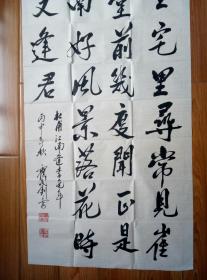 王宅里尋常見崔
堂前幾度聞正是
南好風景落花時
又逢君
杜甫江南逢李龜年
丙申 秋 書